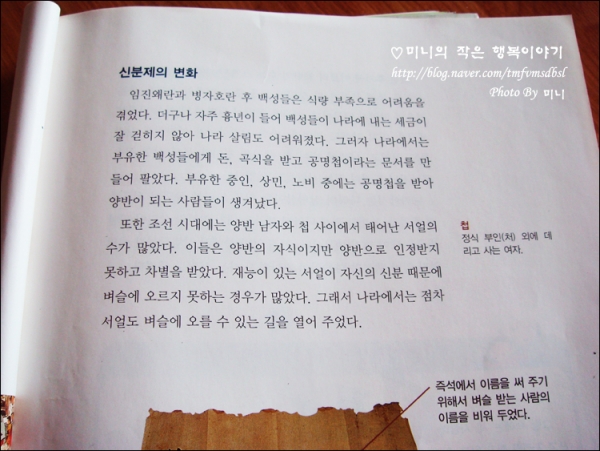 ♡미니의 작은 행복이야기
http://blog.naver.com/tmfvmsdbsl
Photo By 미니
신분제의 변화
임진왜란과 병자호란 후 백성들은 식량 부족으로 어려움을
겪었다. 더구나 자주 흉년이 들어 백성들이 나라에 내는 세금이
잘 걷히지 않아 나라 살림도 어려워졌다. 그러자 나라에서는
부유한 백성들에게 돈, 곡식을 받고 공명첩이라는 문서를 만
들어 팔았다. 부유한 중인, 상민, 노비 중에는 공명첩을 받아
양반이 되는 사람들이 생겨났다.
또한 조선 시대에는 양반 남자와 첩 사이에서 태어난 서얼의
수가 많았다. 이들은 양반의 자식이지만 양반으로 인정받지
못하고 차별을 받았다. 재능이 있는 서얼이 자신의 신분 때문에
벼슬에 오르지 못하는 경우가 많았다. 그래서 나라에서는 점차
서얼도 벼슬에 오를 수 있는 길을 열어 주었다.
첩
정식 부인(처) 외에 데
리고 사는 여자.
즉석에서 이름을 써 주기
위해서 벼슬 받는 사람의
이름을 비워 두었다.